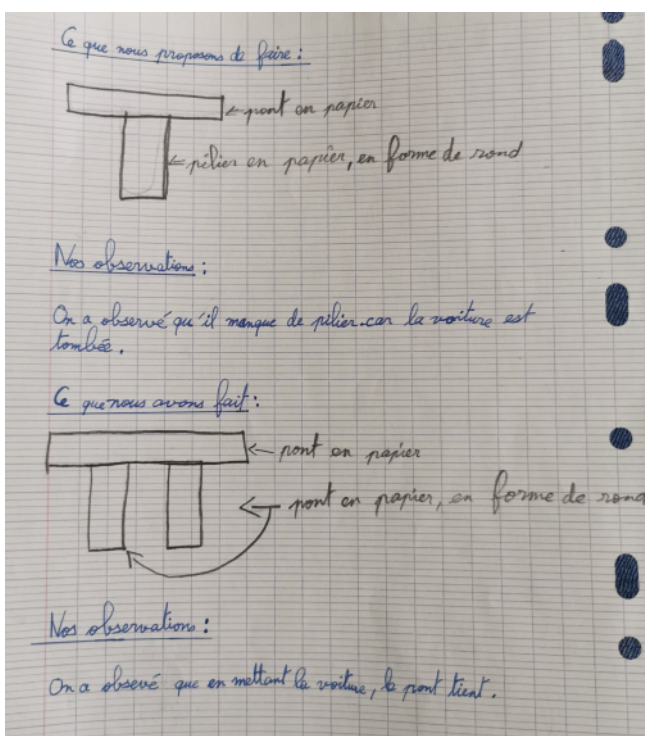 Ce que nous proposons de faire :
pont en papier
pilier en papier, en forme de rond
Nos observations :
On a observé qu'il manque de pilier car la voiture est
tombée.
Ce que nous avons fait :
pont en papier
pont en papier, en forme de rond
Nos observations :
On a obsevé que en mettant la voiture, le pont tient.